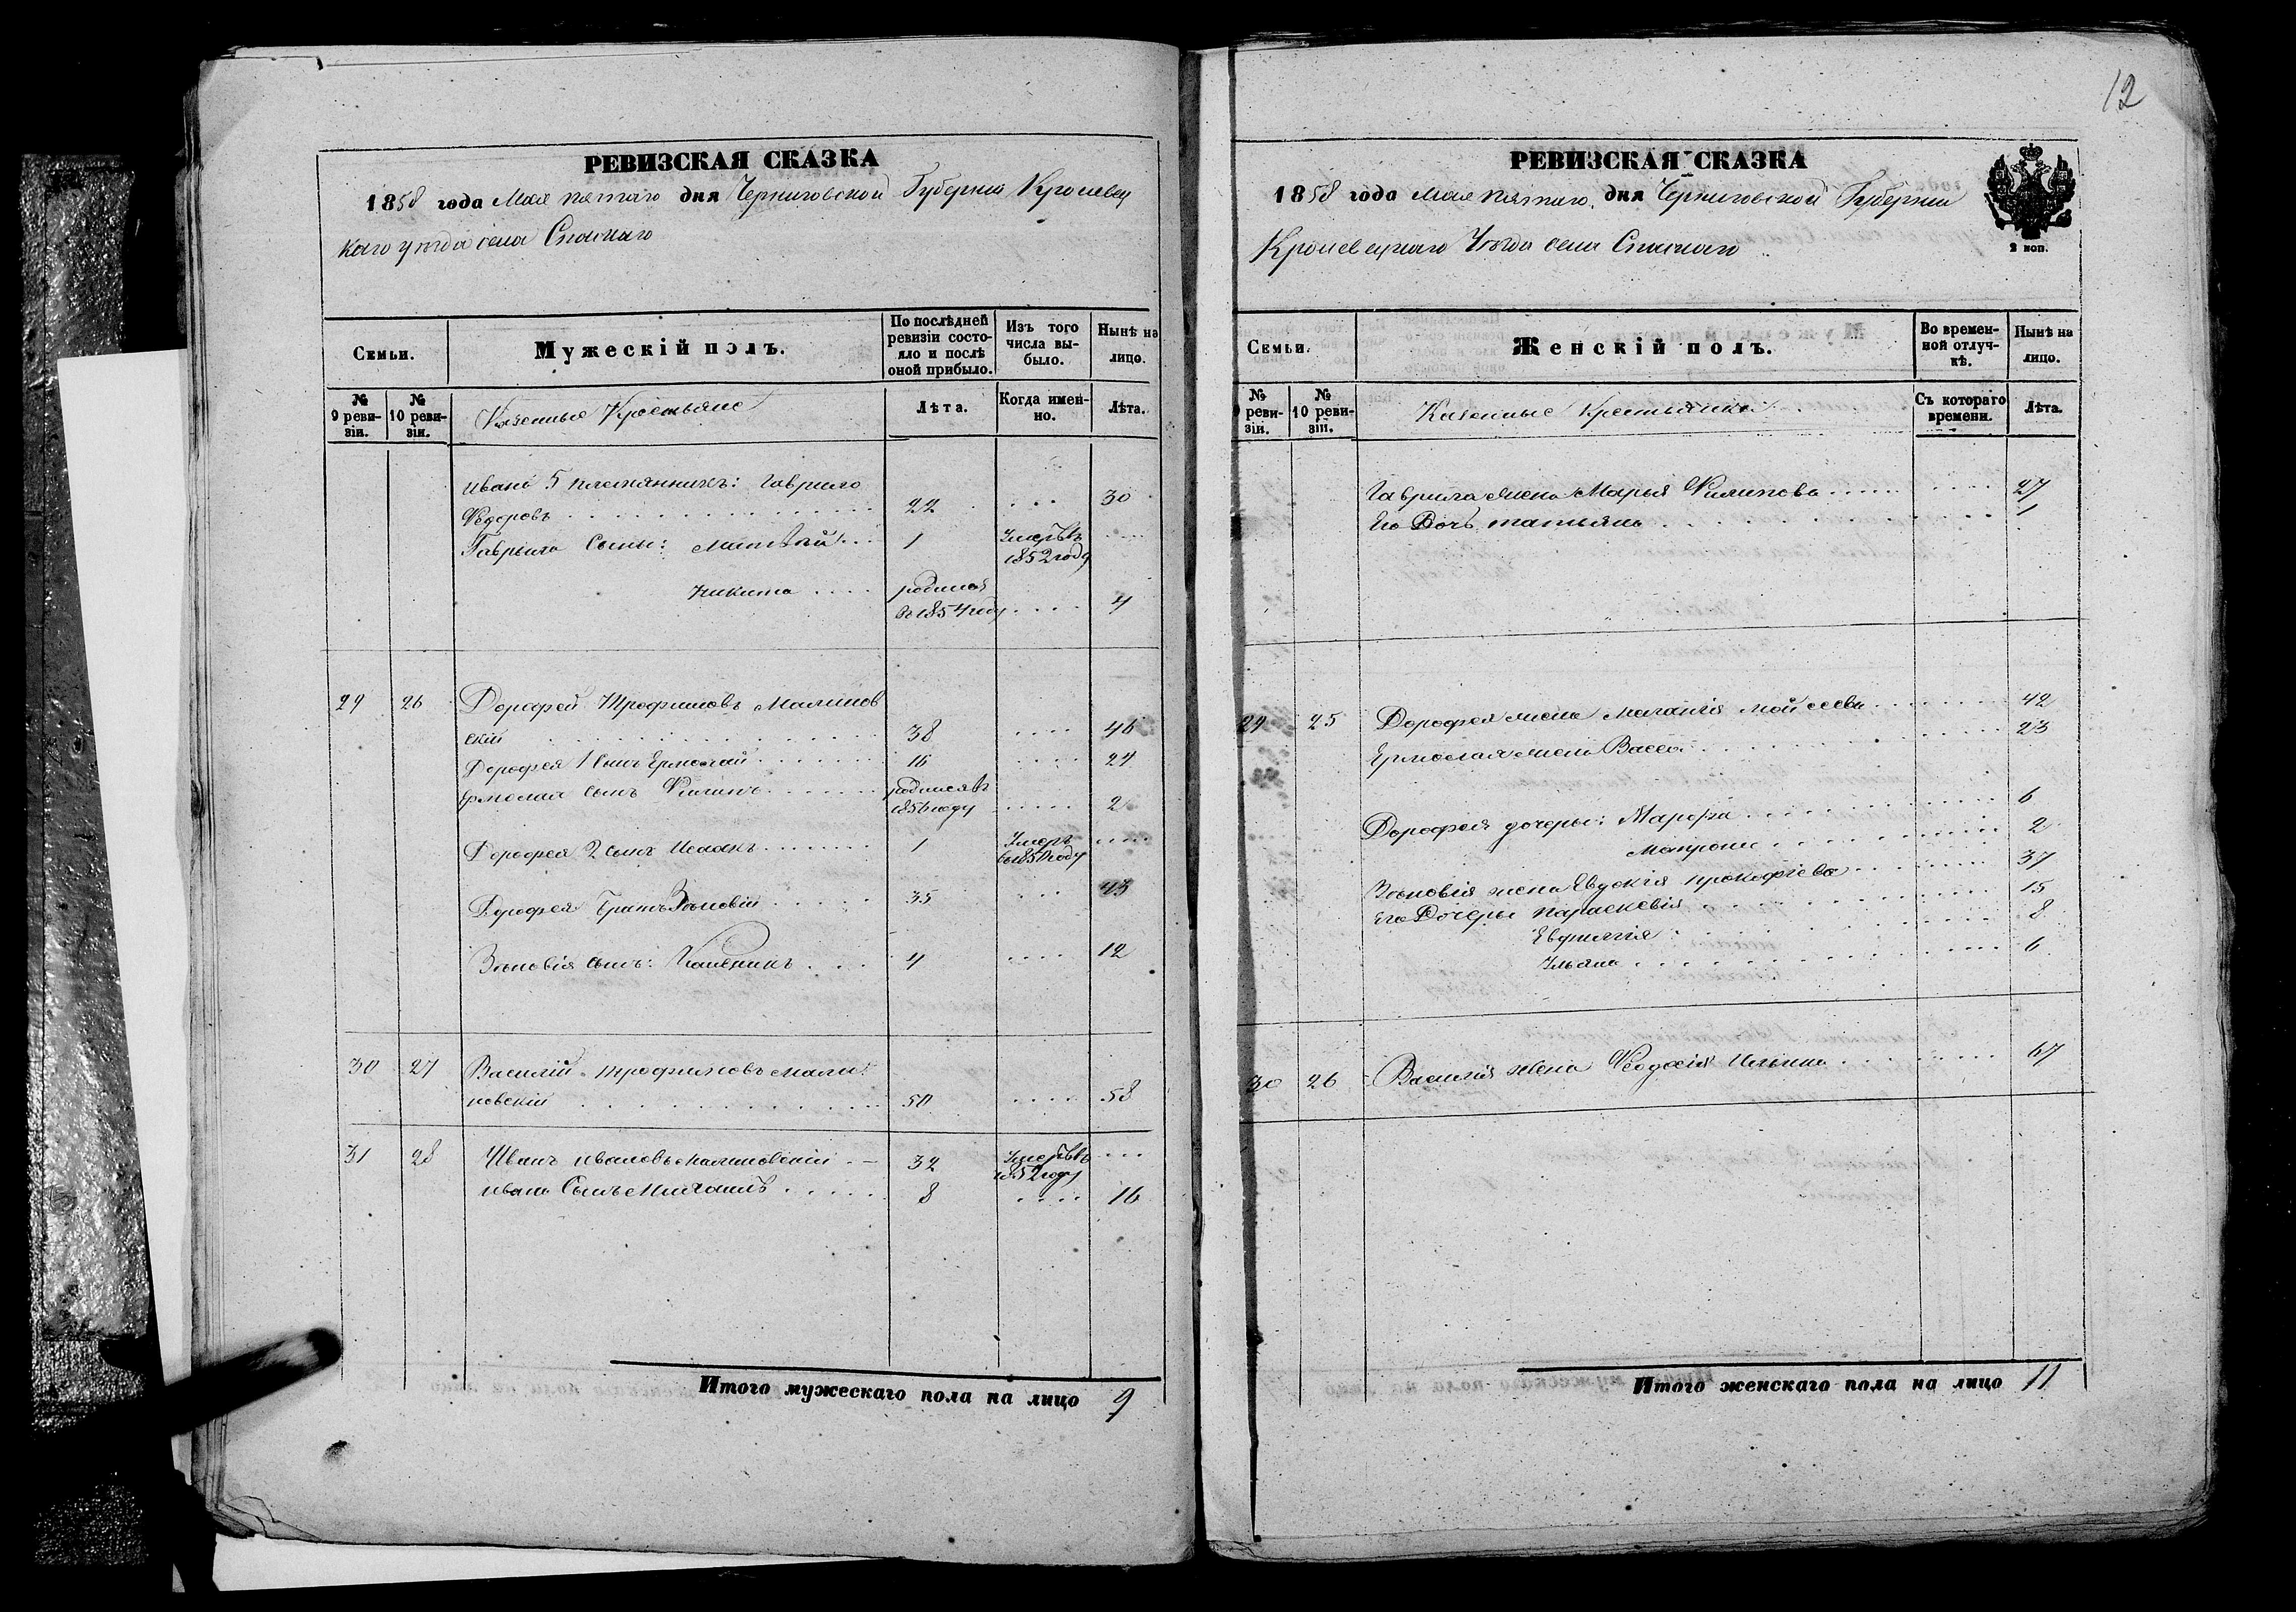 12
РЕВИЗСКАЯ СКАЗКА
1858 года Мая пятаго дня Черниговской Губерніи Кролевец
каго уѣзда села Спаскаго
Семьи.
Мужескій полъ.
По послѣдней ревизіи состояло и послѣ оной прибыло.
Изъ того числа выбыло.
Нынѣ на лицо.
№ 9 ревизіи.
№ 10 ревизіи.
Казенные Крестьяне
Лѣта.
Когда именно.
Лѣта.
Ивана 5 племянникъ: Гаврило
Федоровъ 22 30
Гаврила Сыны: 1 Умеръ въ
1852 году
Никита родился
въ 1854 году 4
29 26 Дорофей Трофимовъ Малинов
скій 38 46
Дорофея 1 сынъ Ермолай 16 24
Ермолая сынъ Филипъ родился въ
1856 году 2
Дорофея 2 сынъ Исаакъ 1 Умеръ
въ 1850 году
Дорофея Братъ Зѣновій 35 43
Зѣновія сынъ: Каленикъ 4 12
30 27 Василій Трофимовъ Мали
новскій 50 58
31 28 Иванъ Ивановъ Малиновскій 32 Умеръ въ
1852 году
Ивана Сынъ Михаилъ 8 16
Итого мужескаго пола на лицо 9
РЕВИЗСКАЯ СКАЗКА
1858 года Мая пятаго дня Черниговской Губерніи
Кролевецкаго Уѣзда села Спаскаго
2 коп.
Семьи.
Женскій полъ.
Во временной отлучкѣ.
Нынѣ на лицо.
№ 9 ревизіи.
№ 10 ревизіи.
Казенные Крестьянки
Съ котораго времени.
Лѣта.
Гаврила жена Марья Филипова 27
Его Дочь татьяна 1
29 25 Дорофея жена Маланія Мойсеева 42
Ермолая жена Васса 23
Дорофея дочеры: Марфа 6
Матрона 2
Зѣновія жена Евдокія Прокофіева 37
Его Дочеры Параскевія 15
Евфимія 8
Ульяна 6
30 26 Василія жена Феодосія Ильина 67
Итого женскаго пола на лицо 11